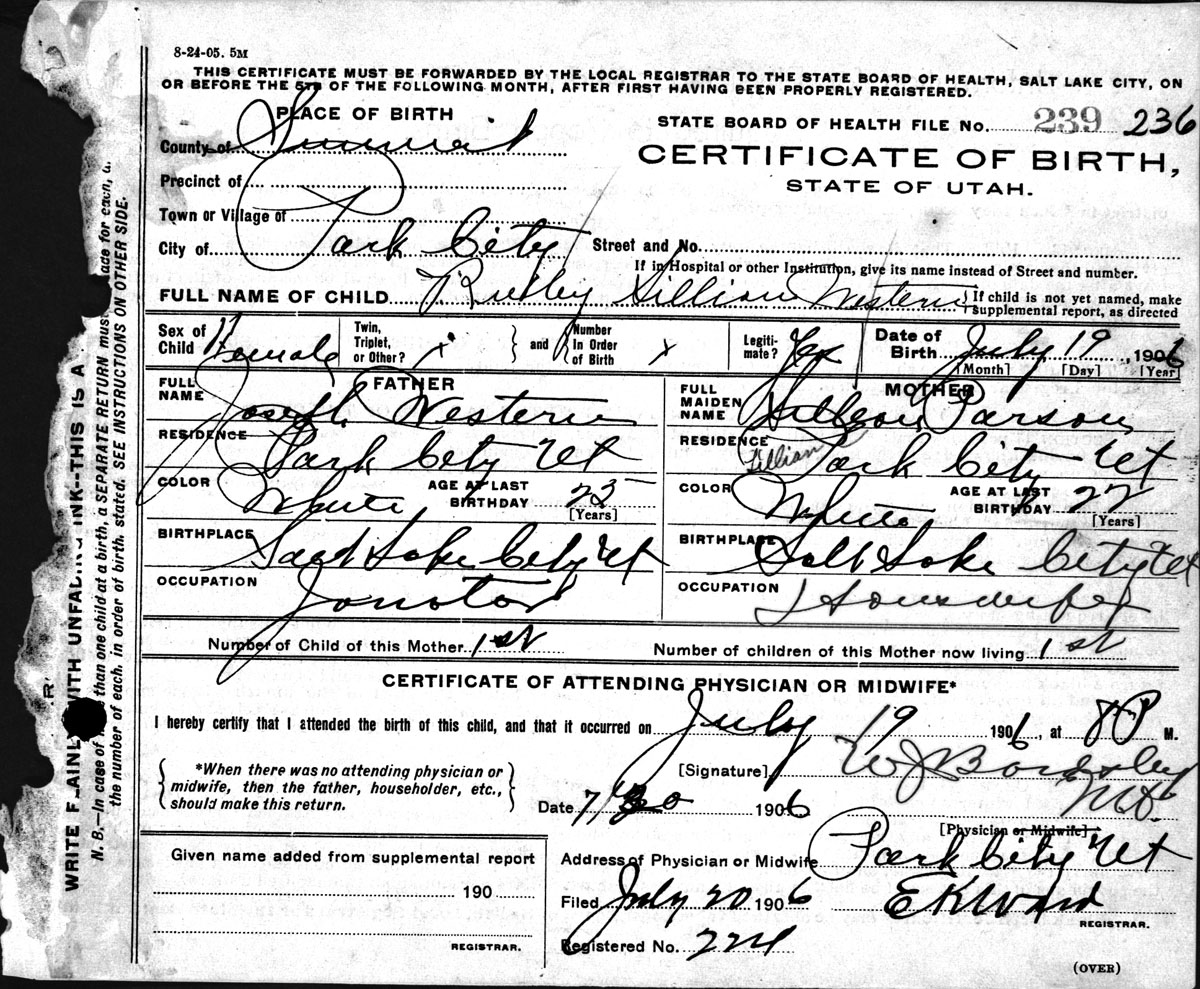 8-24-05. 5M
THIS CERTIFICATE MUST BE FORWARDED BY THE LOCAL REGISTRAR TO THE STATE BOARD OF HEALTH, SALT LAKE CITY, ON
OR BEFORE THE 5TH OF THE FOLLOWING MONTH, AFTER FIRST HAVING BEEN PROPERLY REGISTERED.
PLACE OF BIRTH
County of Summit
Precinct of
Town or Village of
City of Park City
STATE BOARD OF HEALTH FILE No. 239 236
CERTIFICATE OF BIRTH,
STATE OF UTAH.
Street and No.
If in Hospital or other Institution, give its name instead of Street and number.
FULL NAME OF CHILD Western
If child is not yet named, make
supplemental report, as directed
Sex of Child Female
Twin, Triplet, or Other? x
and Number In Order of Birth x
Legitimate? Yes
Date of Birth July 19, 1906
[Month] [Day] [Year]
FATHER
FULL NAME Joseph Western
RESIDENCE Park City Ut
COLOR White
AGE AT LAST BIRTHDAY 25
[Years]
BIRTHPLACE Salt Lake City Ut
OCCUPATION
MOTHER
FULL MAIDEN NAME Parson
Lillian
RESIDENCE Park City Ut
COLOR White
AGE AT LAST BIRTHDAY 22
[Years]
BIRTHPLACE Salt Lake City Ut
OCCUPATION Housewife
Number of Child of this Mother 1st
Number of children of this Mother now living 1st
CERTIFICATE OF ATTENDING PHYSICIAN OR MIDWIFE*
I hereby certify that I attended the birth of this child, and that it occurred on July 19 1906, at 8 P M.
*When there was no attending physician or
midwife, then the father, householder, etc.,
should make this return.
[Signature] W J Bardsley MD.
Date 7/20 1906
[Physician or Midwife]
Given name added from supplemental report
190
REGISTRAR.
Address of Physician or Midwife Park City Ut
Filed July 20 1906 E K Ward
REGISTRAR.
Registered No. 224
(OVER)
WRITE PLAINLY WITH UNFADING INK--THIS IS A
N. B.--In case of more than one child at a birth, a SEPARATE RETURN must be made for each, a
the number of each, in order of birth, stated. SEE INSTRUCTIONS ON OTHER SIDE.